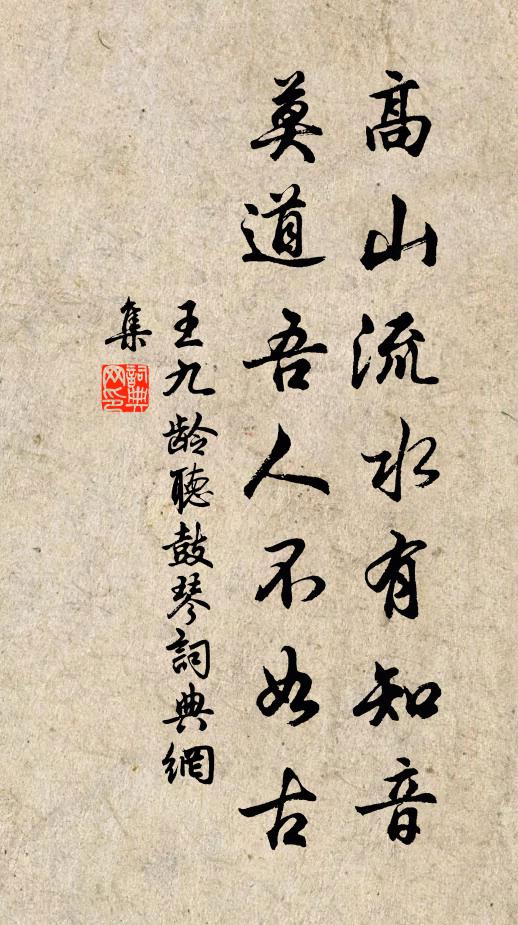 高山流水有知音
莫道吾人不如古
王九龄聽鼓琴詞典網
集
詞典網印